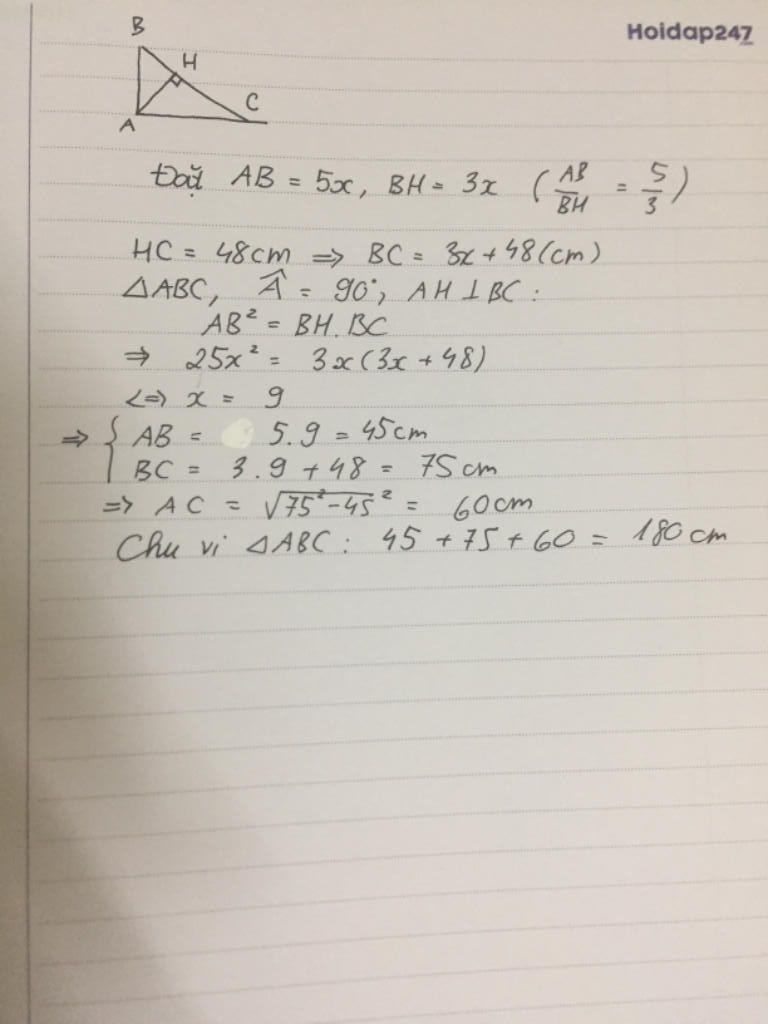 Hoidap247
B
H
C
A
Đặt AB = 5x, BH = 3x (AB/BH = 5/3)
HC = 48cm ⇒ BC = 3x + 48(cm)
△ABC, Â = 90°, AH ⊥ BC :
AB² = BH.BC
⇒ 25x² = 3x(3x + 48)
<=> x = 9
⇒ { AB = 5.9 = 45cm
BC = 3.9 + 48 = 75cm
⇒ AC = √75² - 45² = 60cm
Chu vi △ABC: 45 + 75 + 60 = 180cm